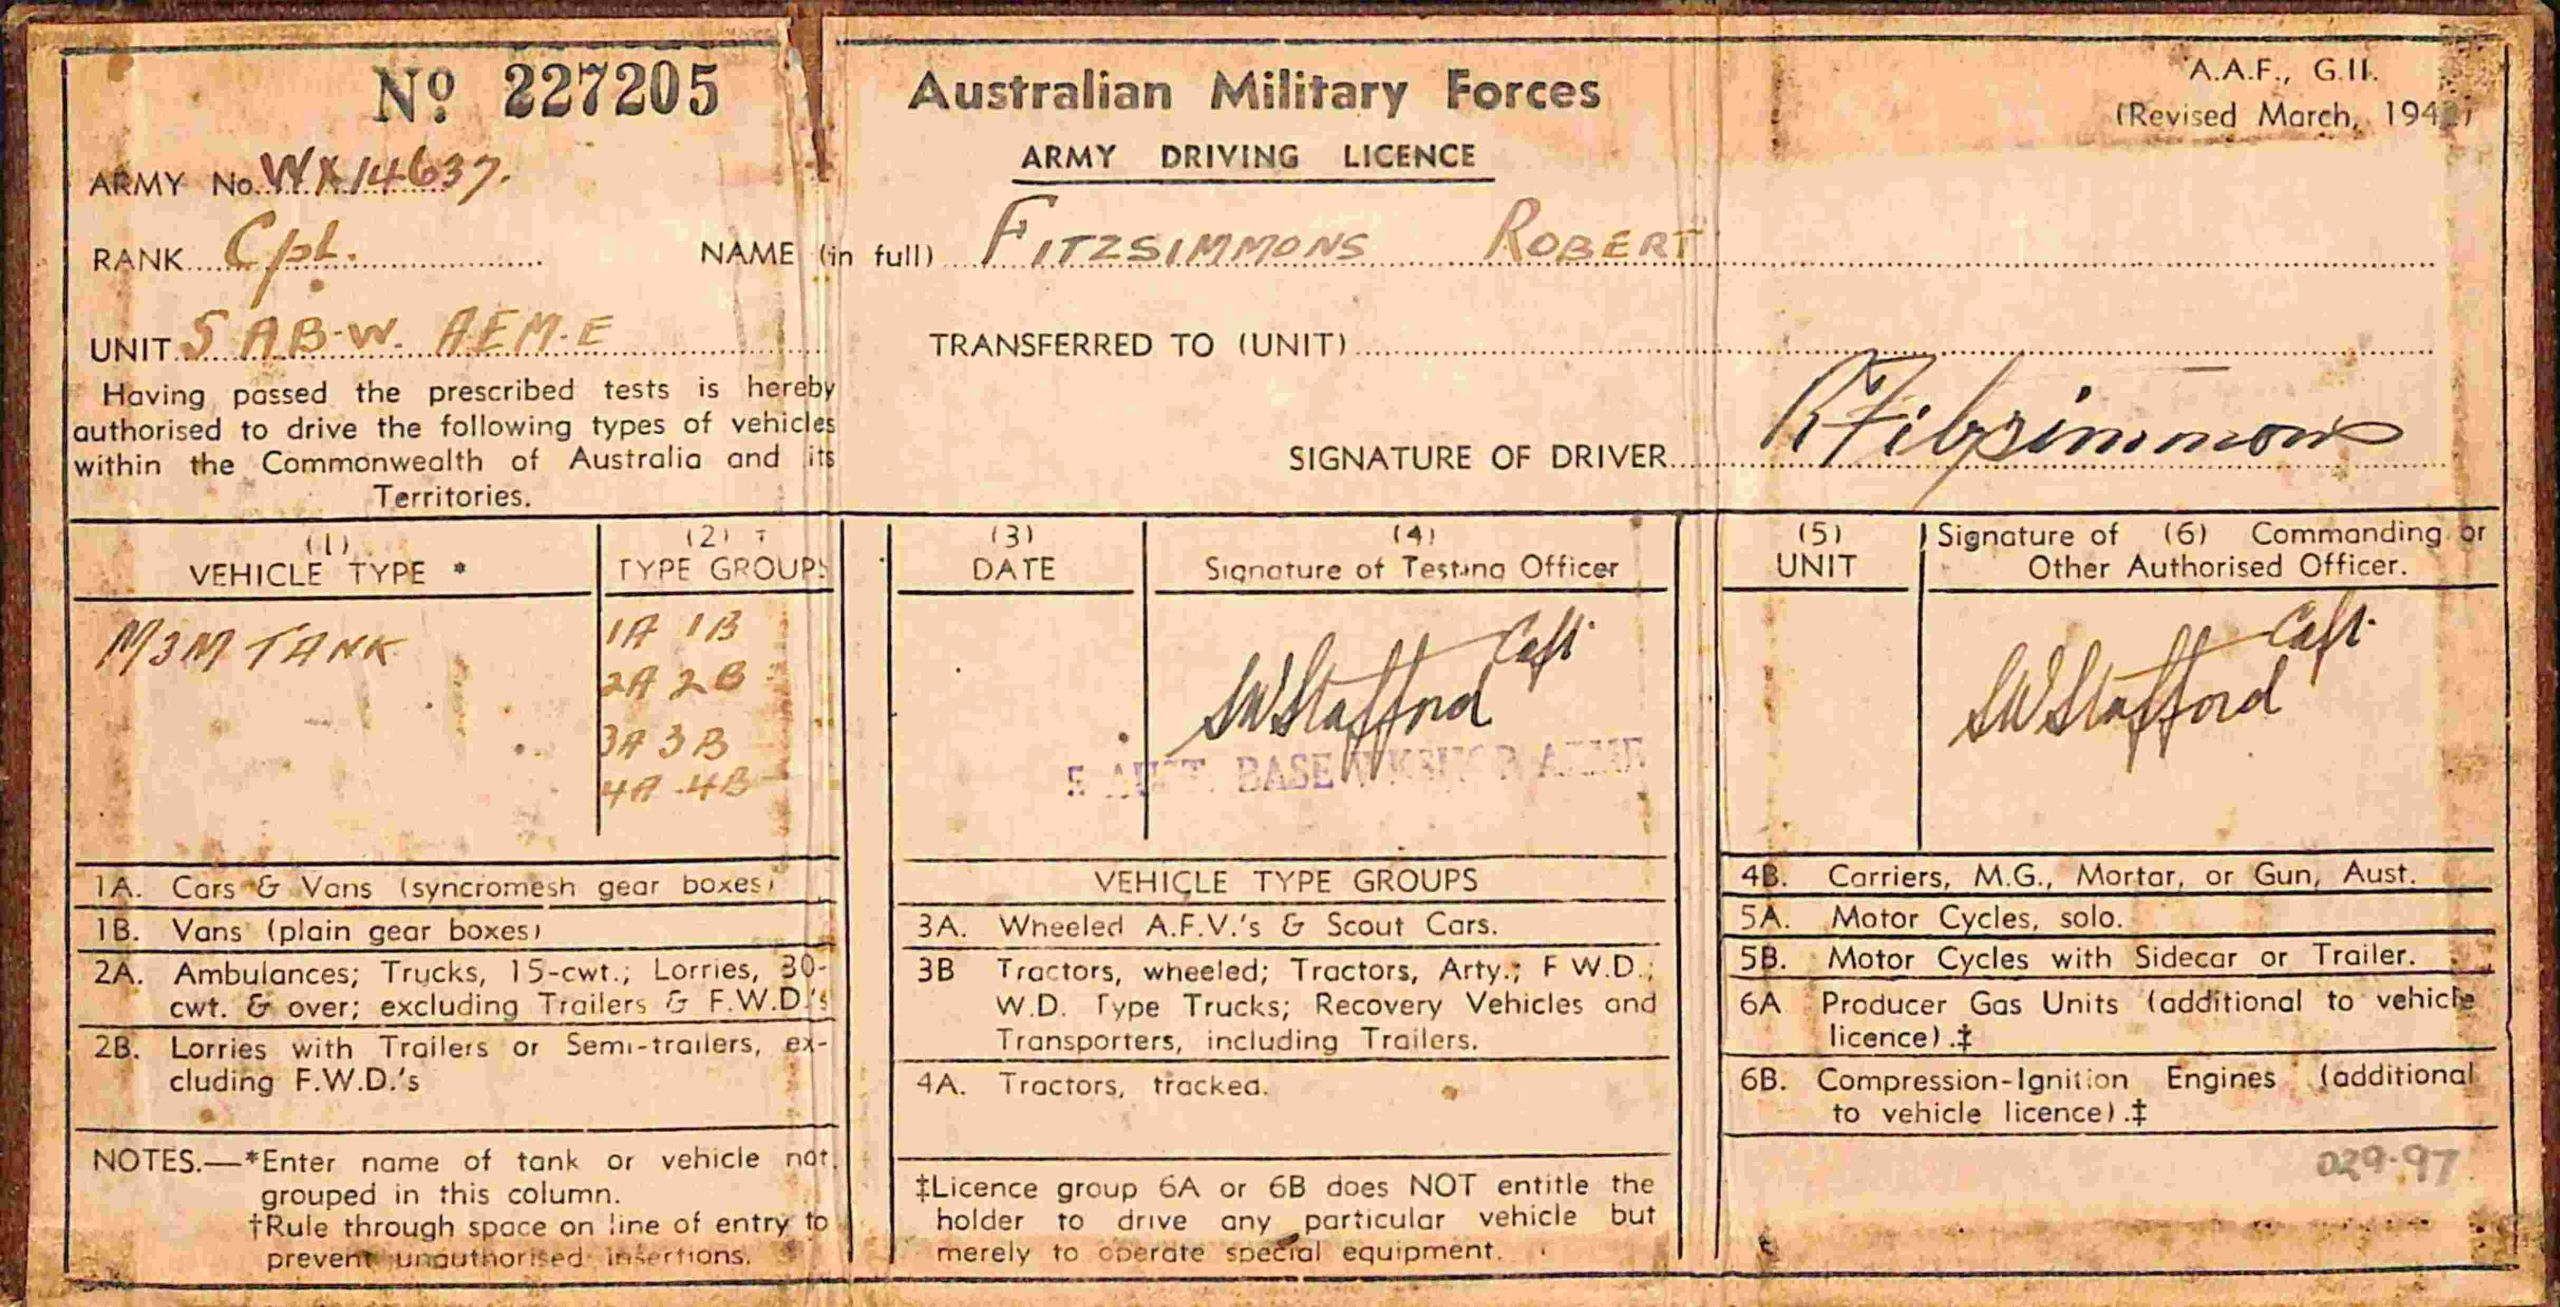 No 227205
Australian Military Forces
A.A.F., G.II.
(Revised March,
ARMY DRIVING LICENCE
ARMY No. WX14637.
RANK Cpl. NAME (in full) FITZSIMMONS ROBERT
UNIT 5 A B-W. AEM-E TRANSFERRED TO (UNIT)
Having passed the prescribed tests is hereby
authorised to drive the following types of vehicles
within the Commonwealth of Australia and its
Territories.
SIGNATURE OF DRIVER R Fitzsimmons
(1)
VEHICLE TYPE *
(2) †
TYPE GROUPS
(3)
DATE
(4)
Signature of Testing Officer
(5)
UNIT
Signature of (6) Commanding or
Other Authorised Officer.
M3M TANK
1A 1B
2A 2B
3A 3B
4A 4B
SWStafford Capt.
5 AUST. BASE WKSHOP AEME
SWStafford Capt.
1A. Cars & Vans (syncromesh gear boxes)
1B. Vans (plain gear boxes)
2A. Ambulances; Trucks, 15-cwt.; Lorries, 30-
cwt. & over; excluding Trailers & F.W.D.'s
2B. Lorries with Trailers or Semi-trailers, ex-
cluding F.W.D.'s
NOTES.—*Enter name of tank or vehicle not
grouped in this column.
†Rule through space on line of entry to
prevent unauthorised insertions.
VEHICLE TYPE GROUPS
3A. Wheeled A.F.V.'s & Scout Cars.
3B Tractors, wheeled; Tractors, Arty.; F W.D.;
W.D. Type Trucks; Recovery Vehicles and
Transporters, including Trailers.
4A. Tractors, tracked.
‡Licence group 6A or 6B does NOT entitle the
holder to drive any particular vehicle but
merely to operate special equipment.
4B. Carriers, M.G., Mortar, or Gun, Aust.
5A. Motor Cycles, solo.
5B. Motor Cycles with Sidecar or Trailer.
6A Producer Gas Units (additional to vehicle
licence).‡
6B. Compression-Ignition Engines (additional
to vehicle licence).‡
029-97